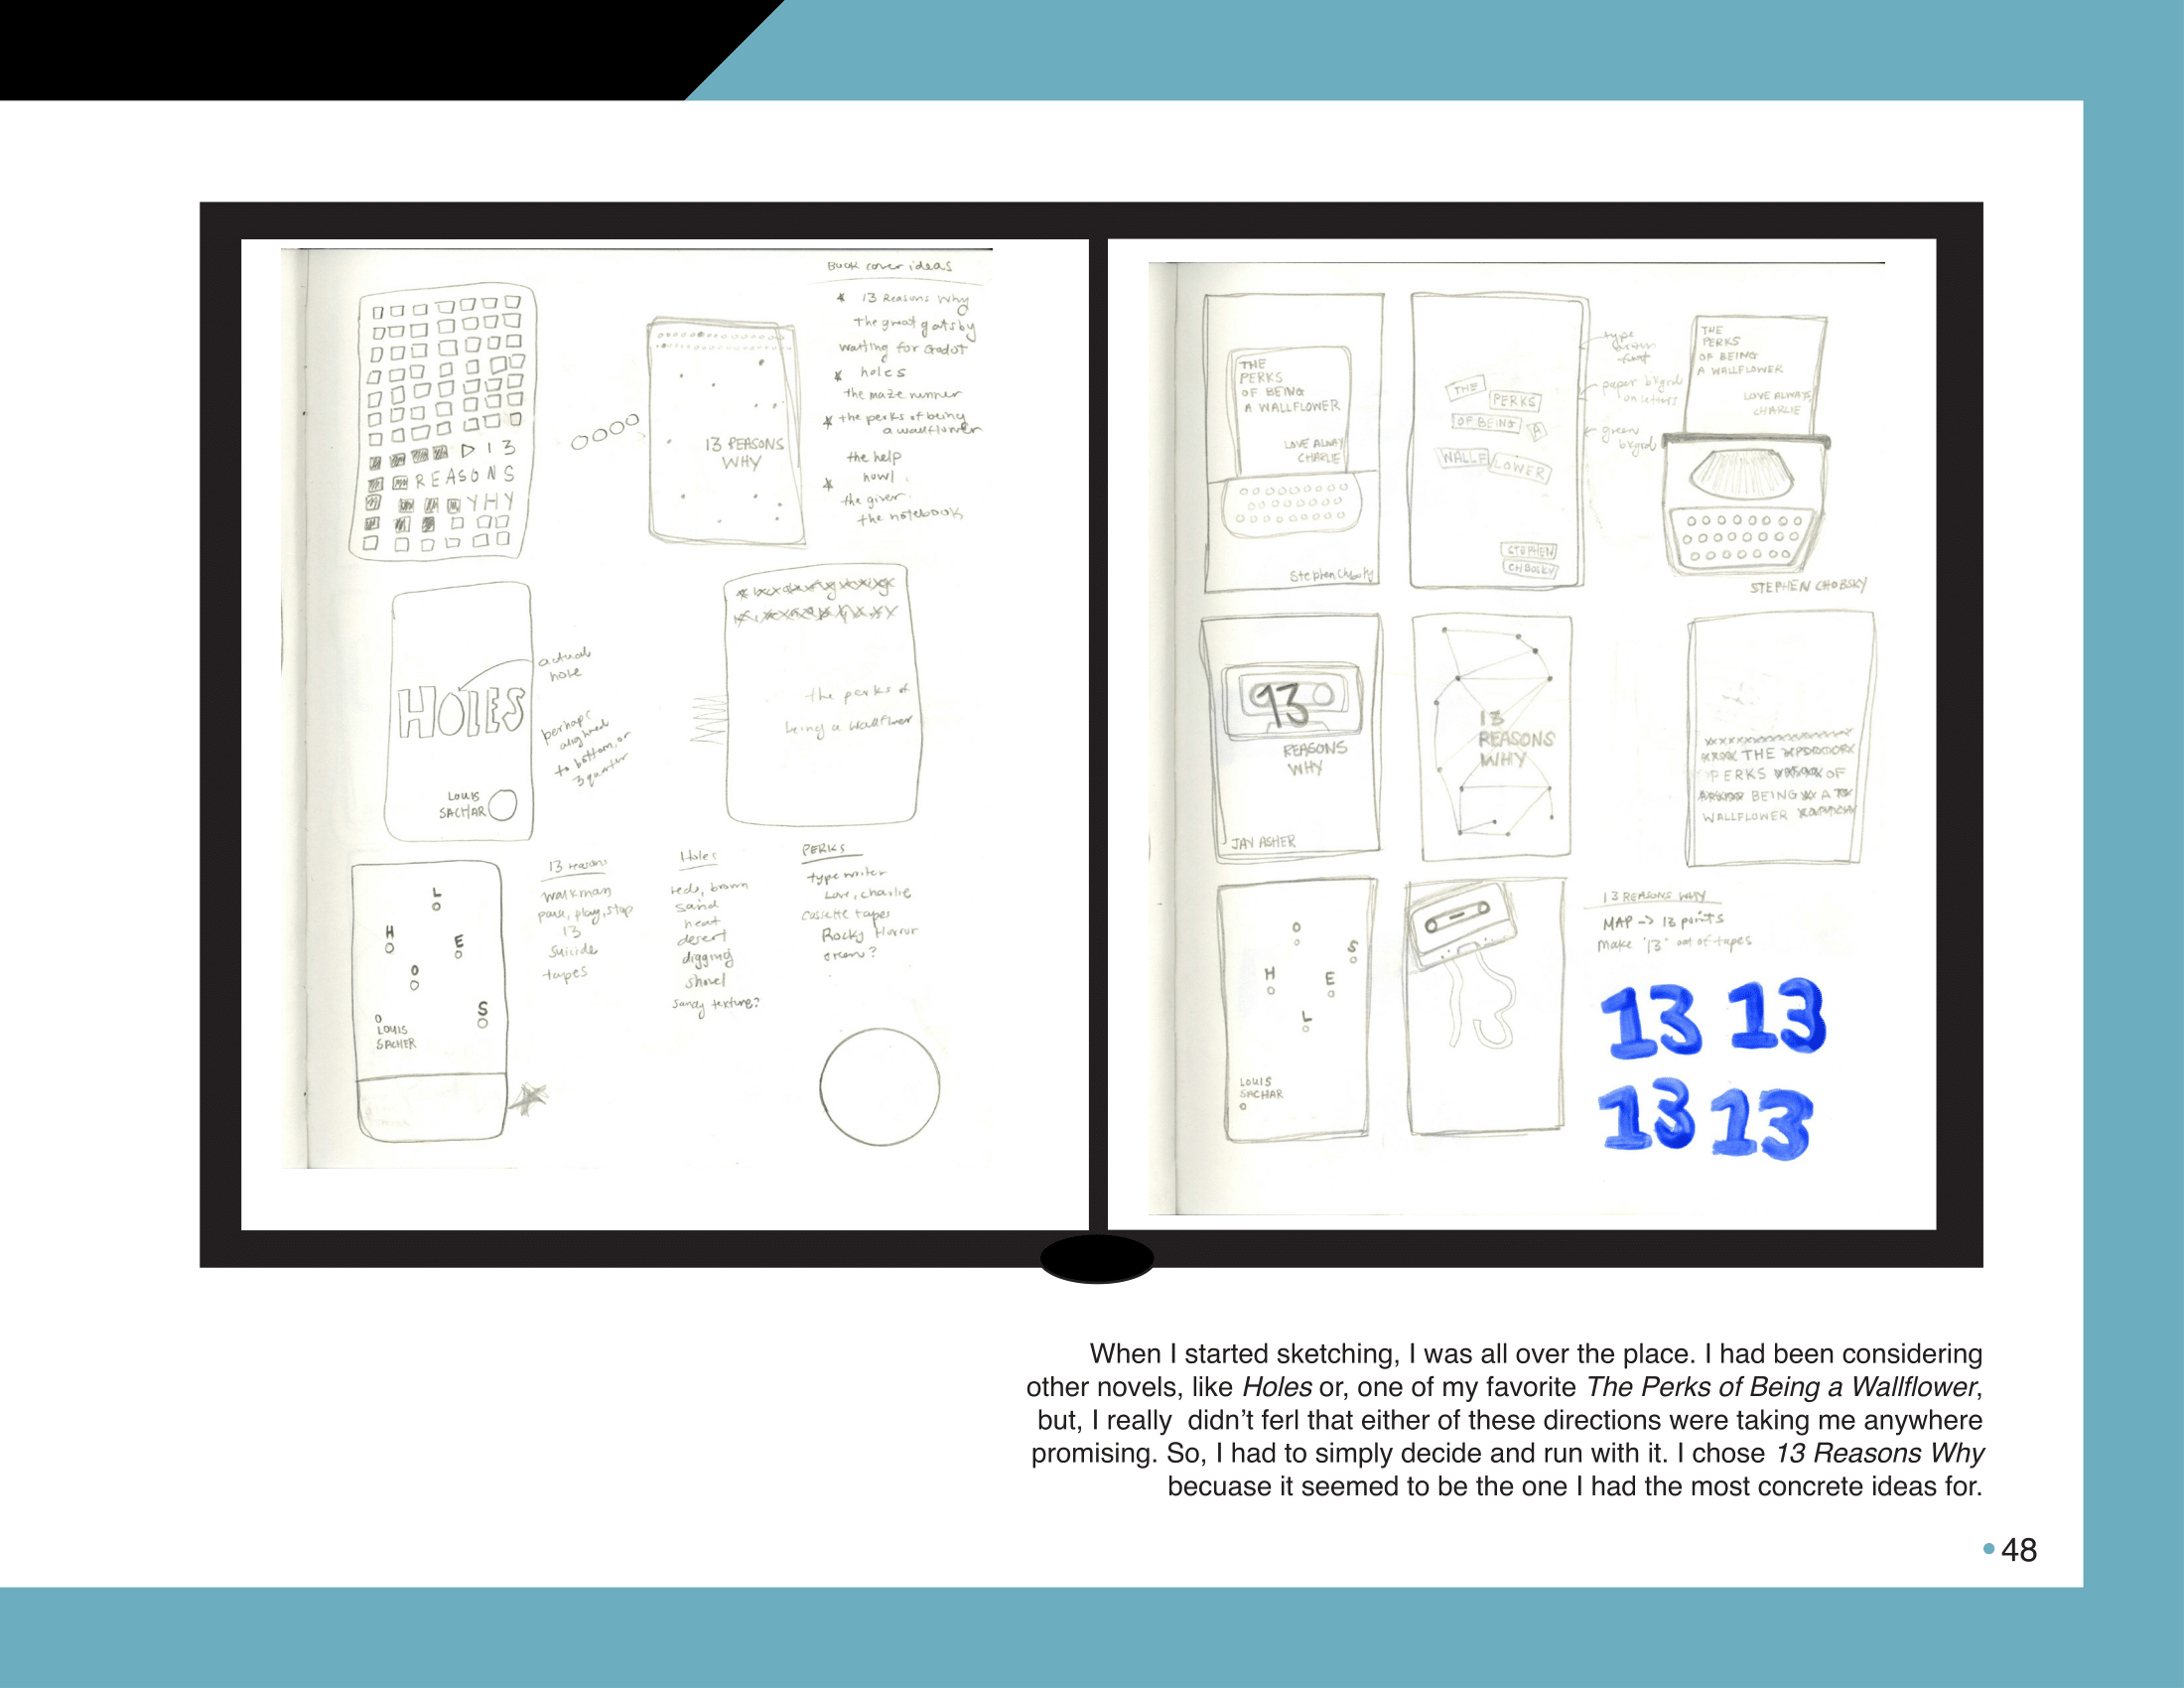 Book cover ideas
13 Reasons Why
the great gatsby
waiting for Godot
holes
the maze runner
the perks of being
a wallflower
the help
howl
the giver
the notebook
13
REASONS
WHY
13 REASONS
WHY
HOLES
actual
hole
perhaps
alighned
to bottom, or
3 quarter
LOUIS
SACHAR
the perks of
being a wallflower
L
H
E
O
S
LOUIS
SACHER
13 reasons
walkman
pause, play, stop
13
suicide
tapes
Holes
reds, brown
sand
heat
desert
digging
shovel
sandy texture?
PERKS
type writer
Love, charlie
cassette tapes
Rocky Horror
THE
PERKS
OF BEING
A WALLFLOWER
LOVE ALWAY
CHARLIE
Stephen Chbosky
THE
PERKS
OF BEING A
WALLFLOWER
STEPHEN
CHBOLKY
type
paper bkgrd
on letters
green
bkgrd
THE
PERKS
OF BEING
A WALLFLOWER
LOVE ALWAYS
CHARLIE
STEPHEN CHOBSKY
13
REASONS
WHY
JAY ASHER
13
REASONS
WHY
THE
PERKS OF
BEING A
WALLFLOWER
O
S
H
E
L
LOUIS
SACHAR
13 REASONS WHY
MAP -> 13 points
make "13" out of tapes
13 13
13 13
When I started sketching, I was all over the place. I had been considering
other novels, like Holes or, one of my favorite The Perks of Being a Wallflower,
but, I really didn't ferl that either of these directions were taking me anywhere
promising. So, I had to simply decide and run with it. I chose 13 Reasons Why
becuase it seemed to be the one I had the most concrete ideas for.
• 48